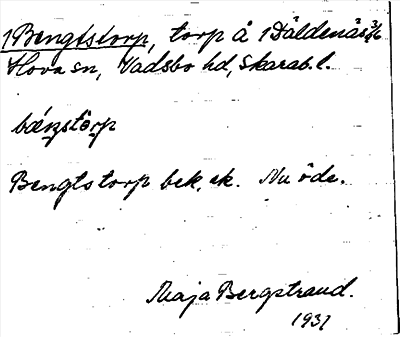 1 Bengtstorp, torp å 1 Däldenäs 3/6
Hova sn, Vadsbo hd, Skarab. l.
bæŋstôrp
Bengtstorp bek. ek. Nu öde.
Maja Bergstrand.
1931